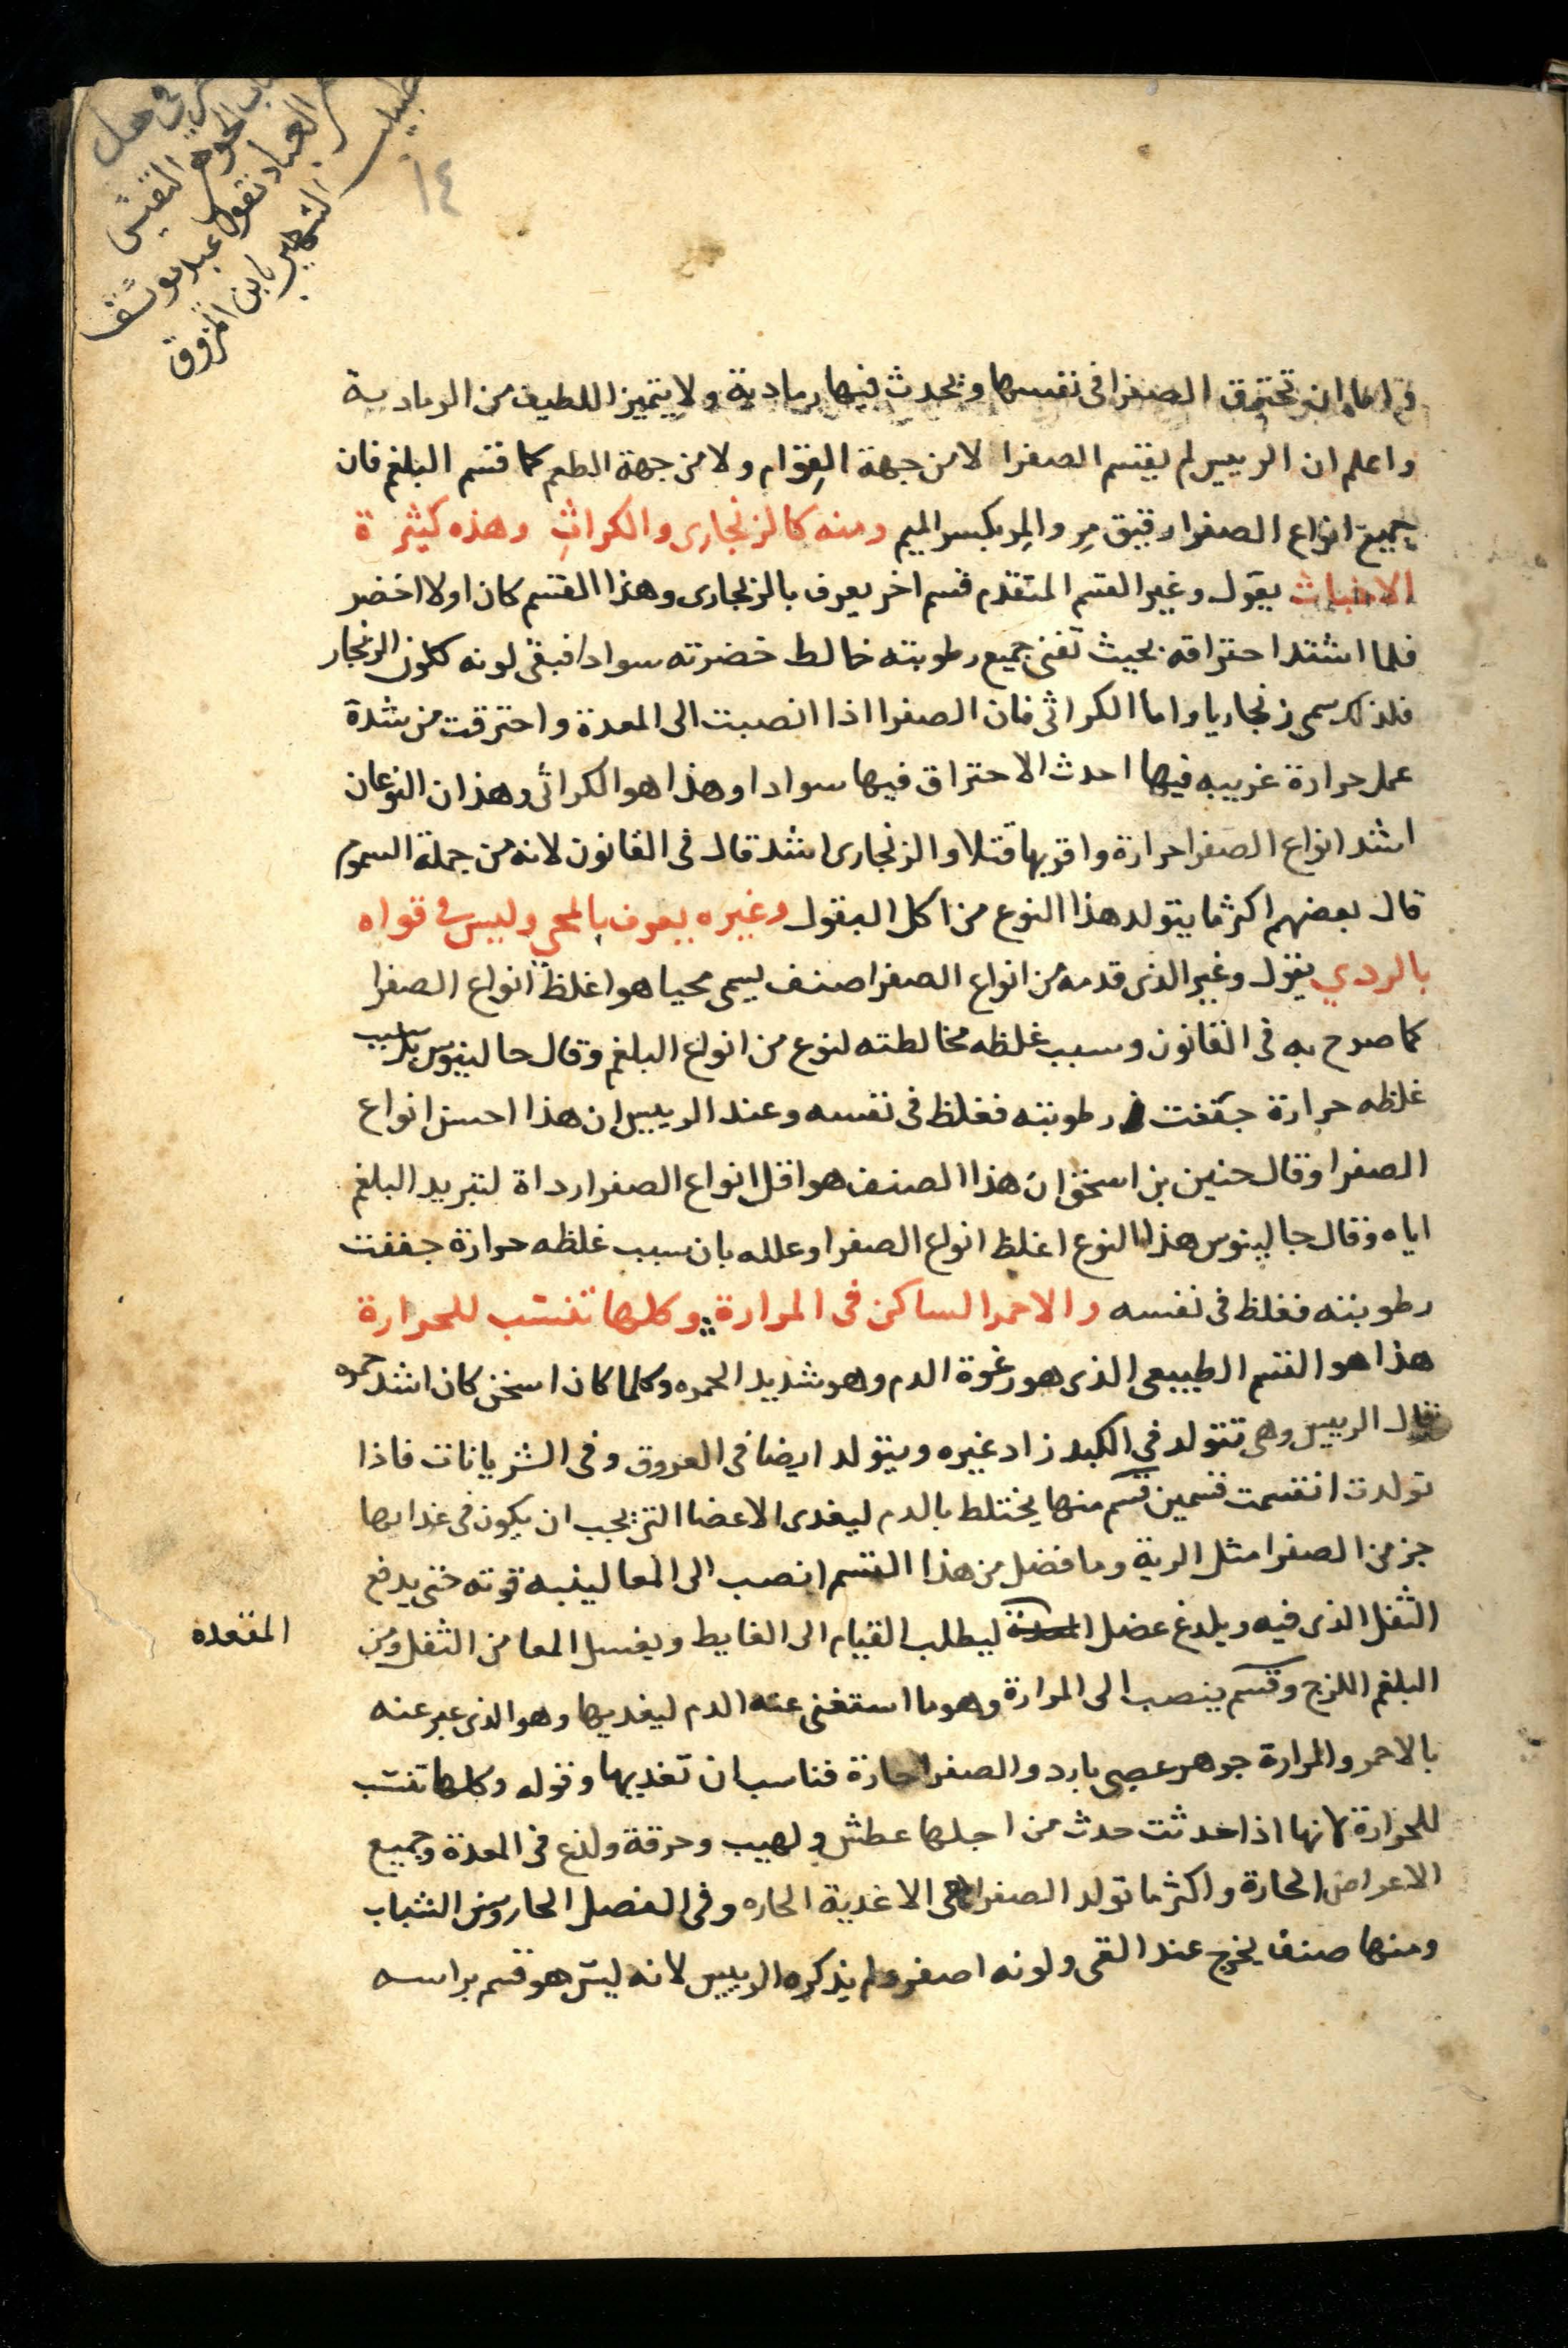 ١٤
في هل
الجوهر النفيس
العباد نقولا عبد يوسف
الشهير بابن المزوق
واما ان تحترق الصفرا فى نفسها ويحدث فيها رمادية ولا يتميز اللطيف من الرمادية
واعلم ان الرييس لم يقسم الصفرا لا من جهة القوام ولا من جهة الطعم كما قسم البلغم فان
جميع انواع الصفرا رقيق مِر والمِر بكسر الميم ومنه كالزنجارى والكراثِ وهذه كثيرة
الاخباث يقول وغير القسم المتقدم قسم اخر يعرف بالزنجارى وهذا القسم كان اولا اخضر
فلما اشتد احتراقه بحيث تفنى جميع رطوبته خالط خضرته سوادا فبقى لونه كلون الزنجار
فلذلك سمى زنجاريا واما الكراثى فان الصفرا اذا انصبت الى المعدة واحترقت من شدة
عمل حرارة غريبه فيها احدث الاحتراق فيها سوادا وهذا هو الكراثى وهذان النوعان
اشد انواع الصفرا حرارة واقربها قتلا والزنجارى اشد قال فى القانون لانه من جملة السموم
قال بعضهم اكثر ما يتولد هذا النوع من اكل البقول وغيره يعرف بالمحى وليس فى قواه
بالردي يقول وغير الذى قدمه من انواع الصفرا صنف يسمى محيا هو اغلظ انواع الصفرا
كما صرح به فى القانون وسبب غلظه مخالطته لنوع من انواع البلغم وقال جالينوس بل سبب
غلظه حرارة جففت رطوبته فغلظ فى نفسه وعند الرييس ان هذا احسن انواع
الصفرا وقال حنين بن اسحق ان هذا الصنف هو اقل انواع الصفرا رداة لتبريد البلغم
اياه وقال جالينوس هذا النوع اغلظ انواع الصفرا وعلله بان سبب غلظه حرارة جففت
رطوبته فغلظ فى نفسه والاحمر الساكن فى المرارة وكلها تنتسب للحرارة
هذا هو القسم الطبيعى الذى هو رغوة الدم وهو شديد الحمره وكلما كان اسخن كان اشد حمره
قال الرييس وهى تتولد في الكبد زاد غيره ويتولد ايضا فى العروق وفى الشريانات فاذا
تولدت انقسمت قسمين قسم منها يختلط بالدم ليغدى الاعضا التى يجب ان يكون فى غدايها
جز من الصفرا مثل الرية وما فضل من هذا القسم انصب الى المعا لينبه قوته حتى يدفع
الثفل الذى فيه ويلدغ عضل ليطلب القيام الى الغايط ويغسل المعا من الثفل ومن
المقعده
البلغم اللزج وقسم ينصب الى المرارة وهو ما استغنى عنه الدم ليغديها وهو الذى عبر عنه
بالاحمر والمرارة جوهر عصبى بارد والصفرا حارة فناسب ان تغديها وقوله وكلها تنتسب
للحرارة لانها اذا حدثت حدث من اجلها عطش ولهيب وحرقة ولذع فى المعدة وجميع
الاعراض الحارة واكثر ما تولد الصفرا فى الاغدية الحاره وفى الفصل الحار وسن الشباب
ومنها صنف يخرج عند القى ولونه اصفر ولم يذكره الرييس لانه ليس هو قسم براسه